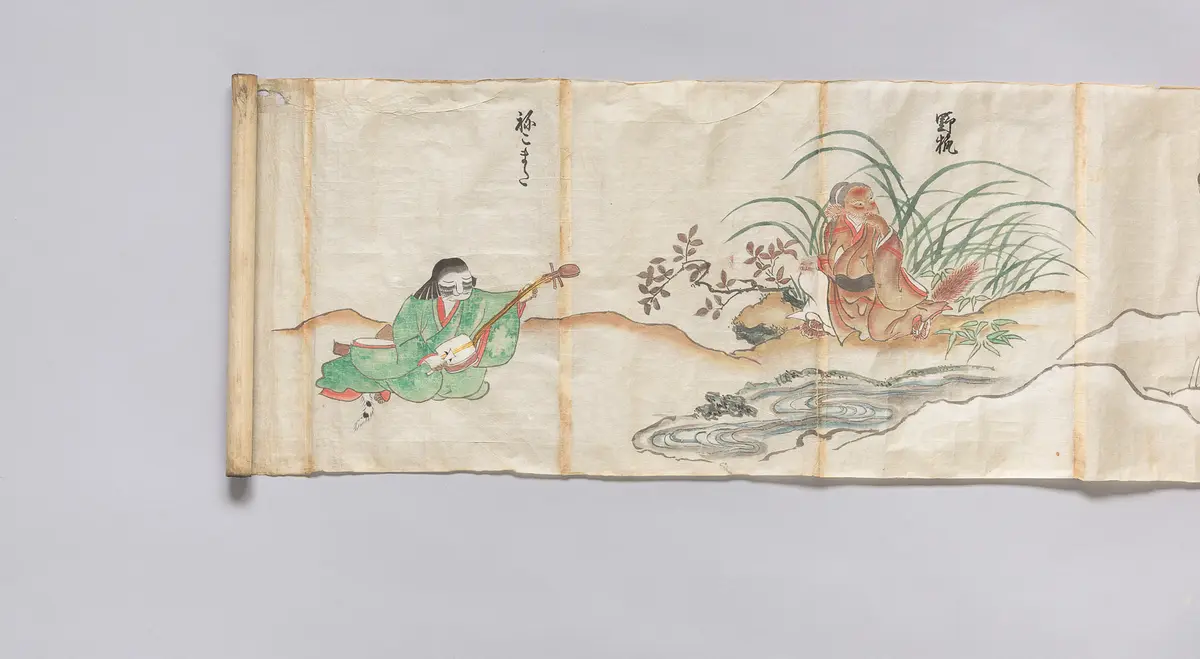 野狐
祢こまた